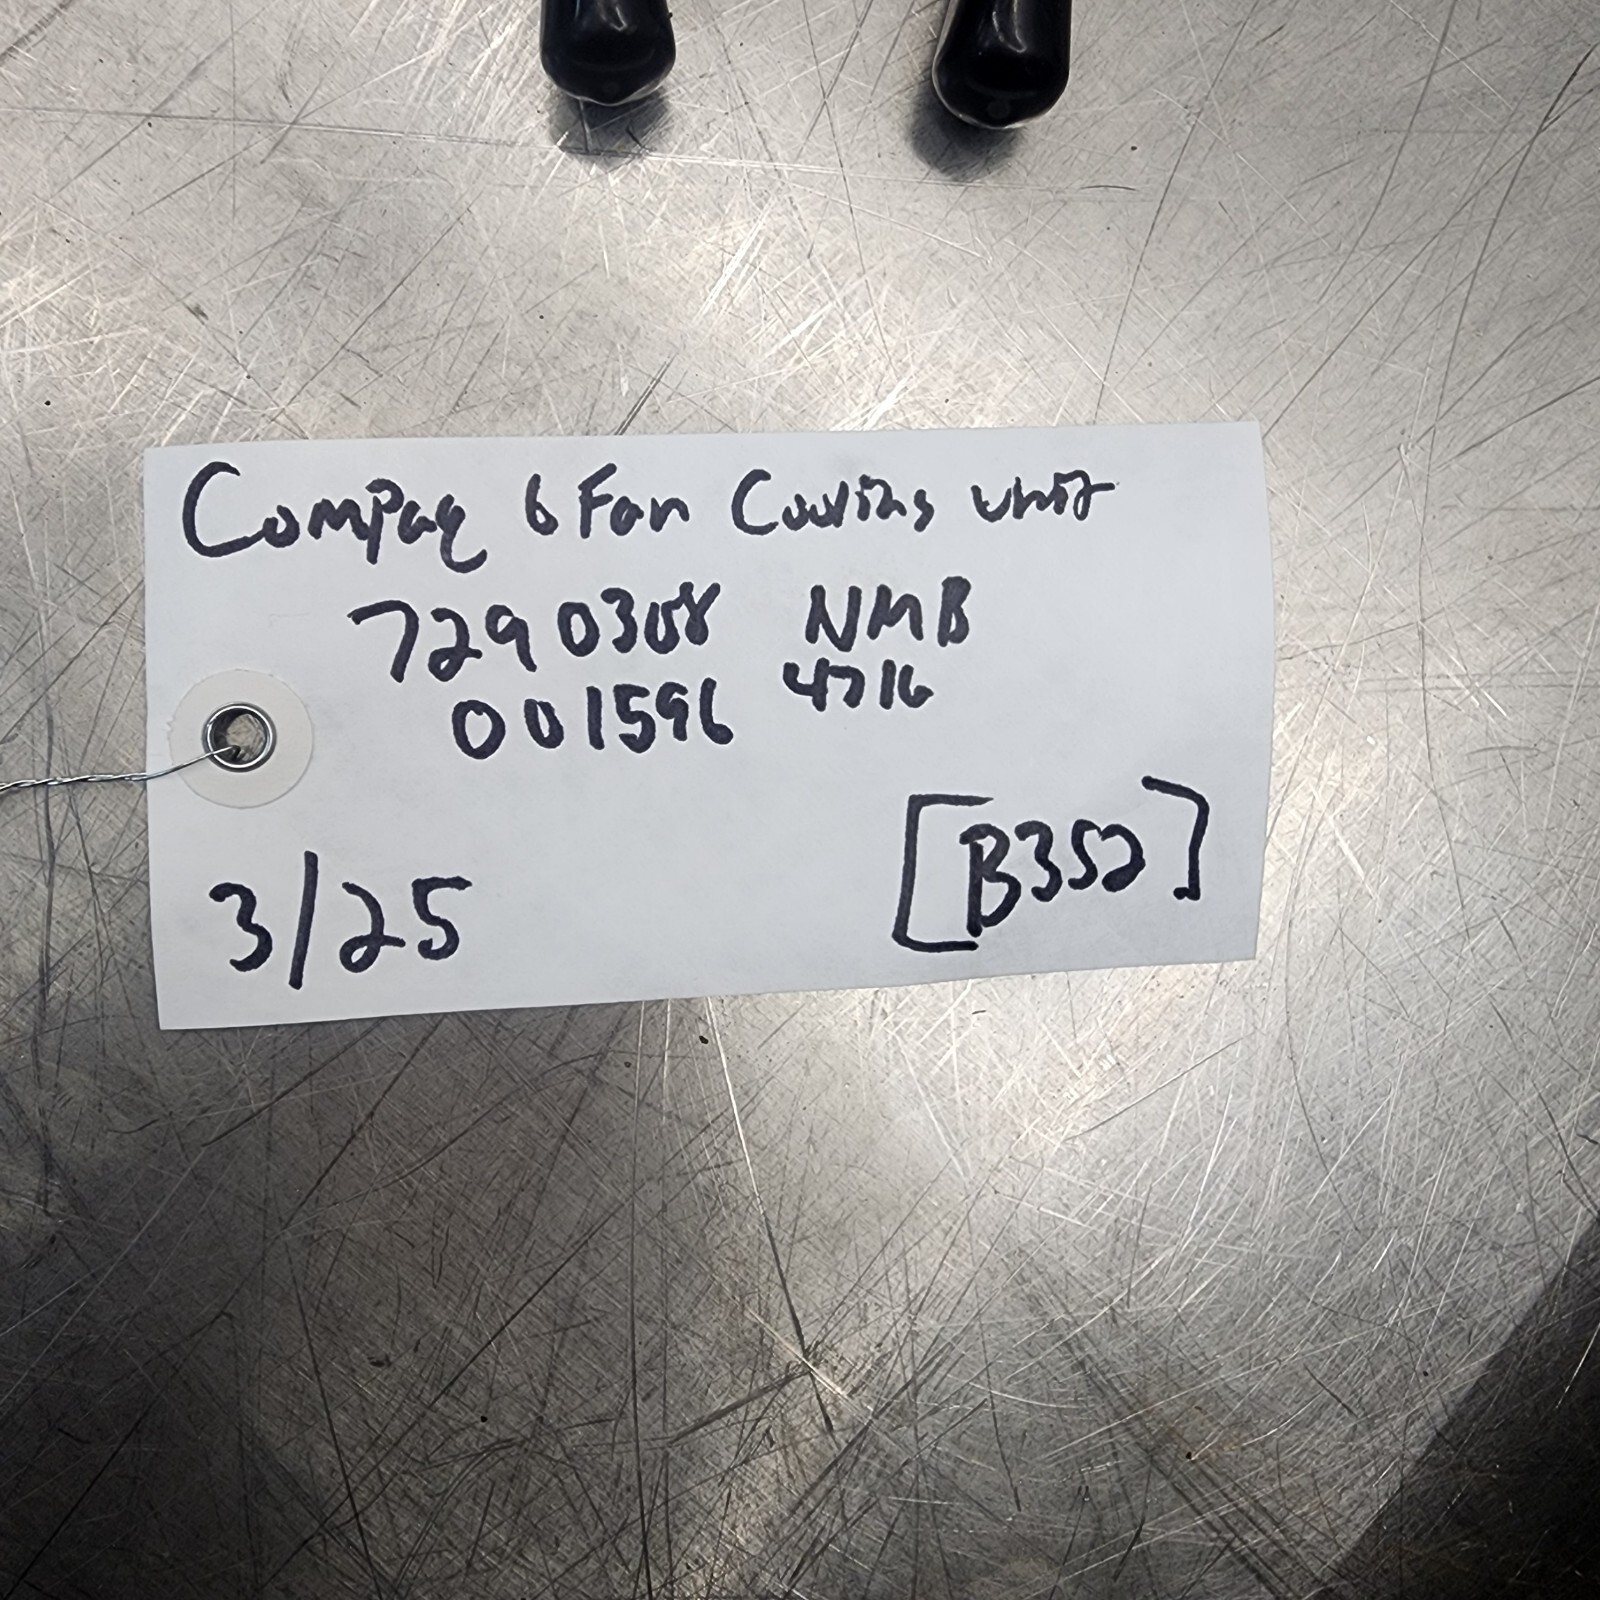 Compaq 6 Fan Cooling unit
7290308 NMB
001596 4716
3/25 [B352]